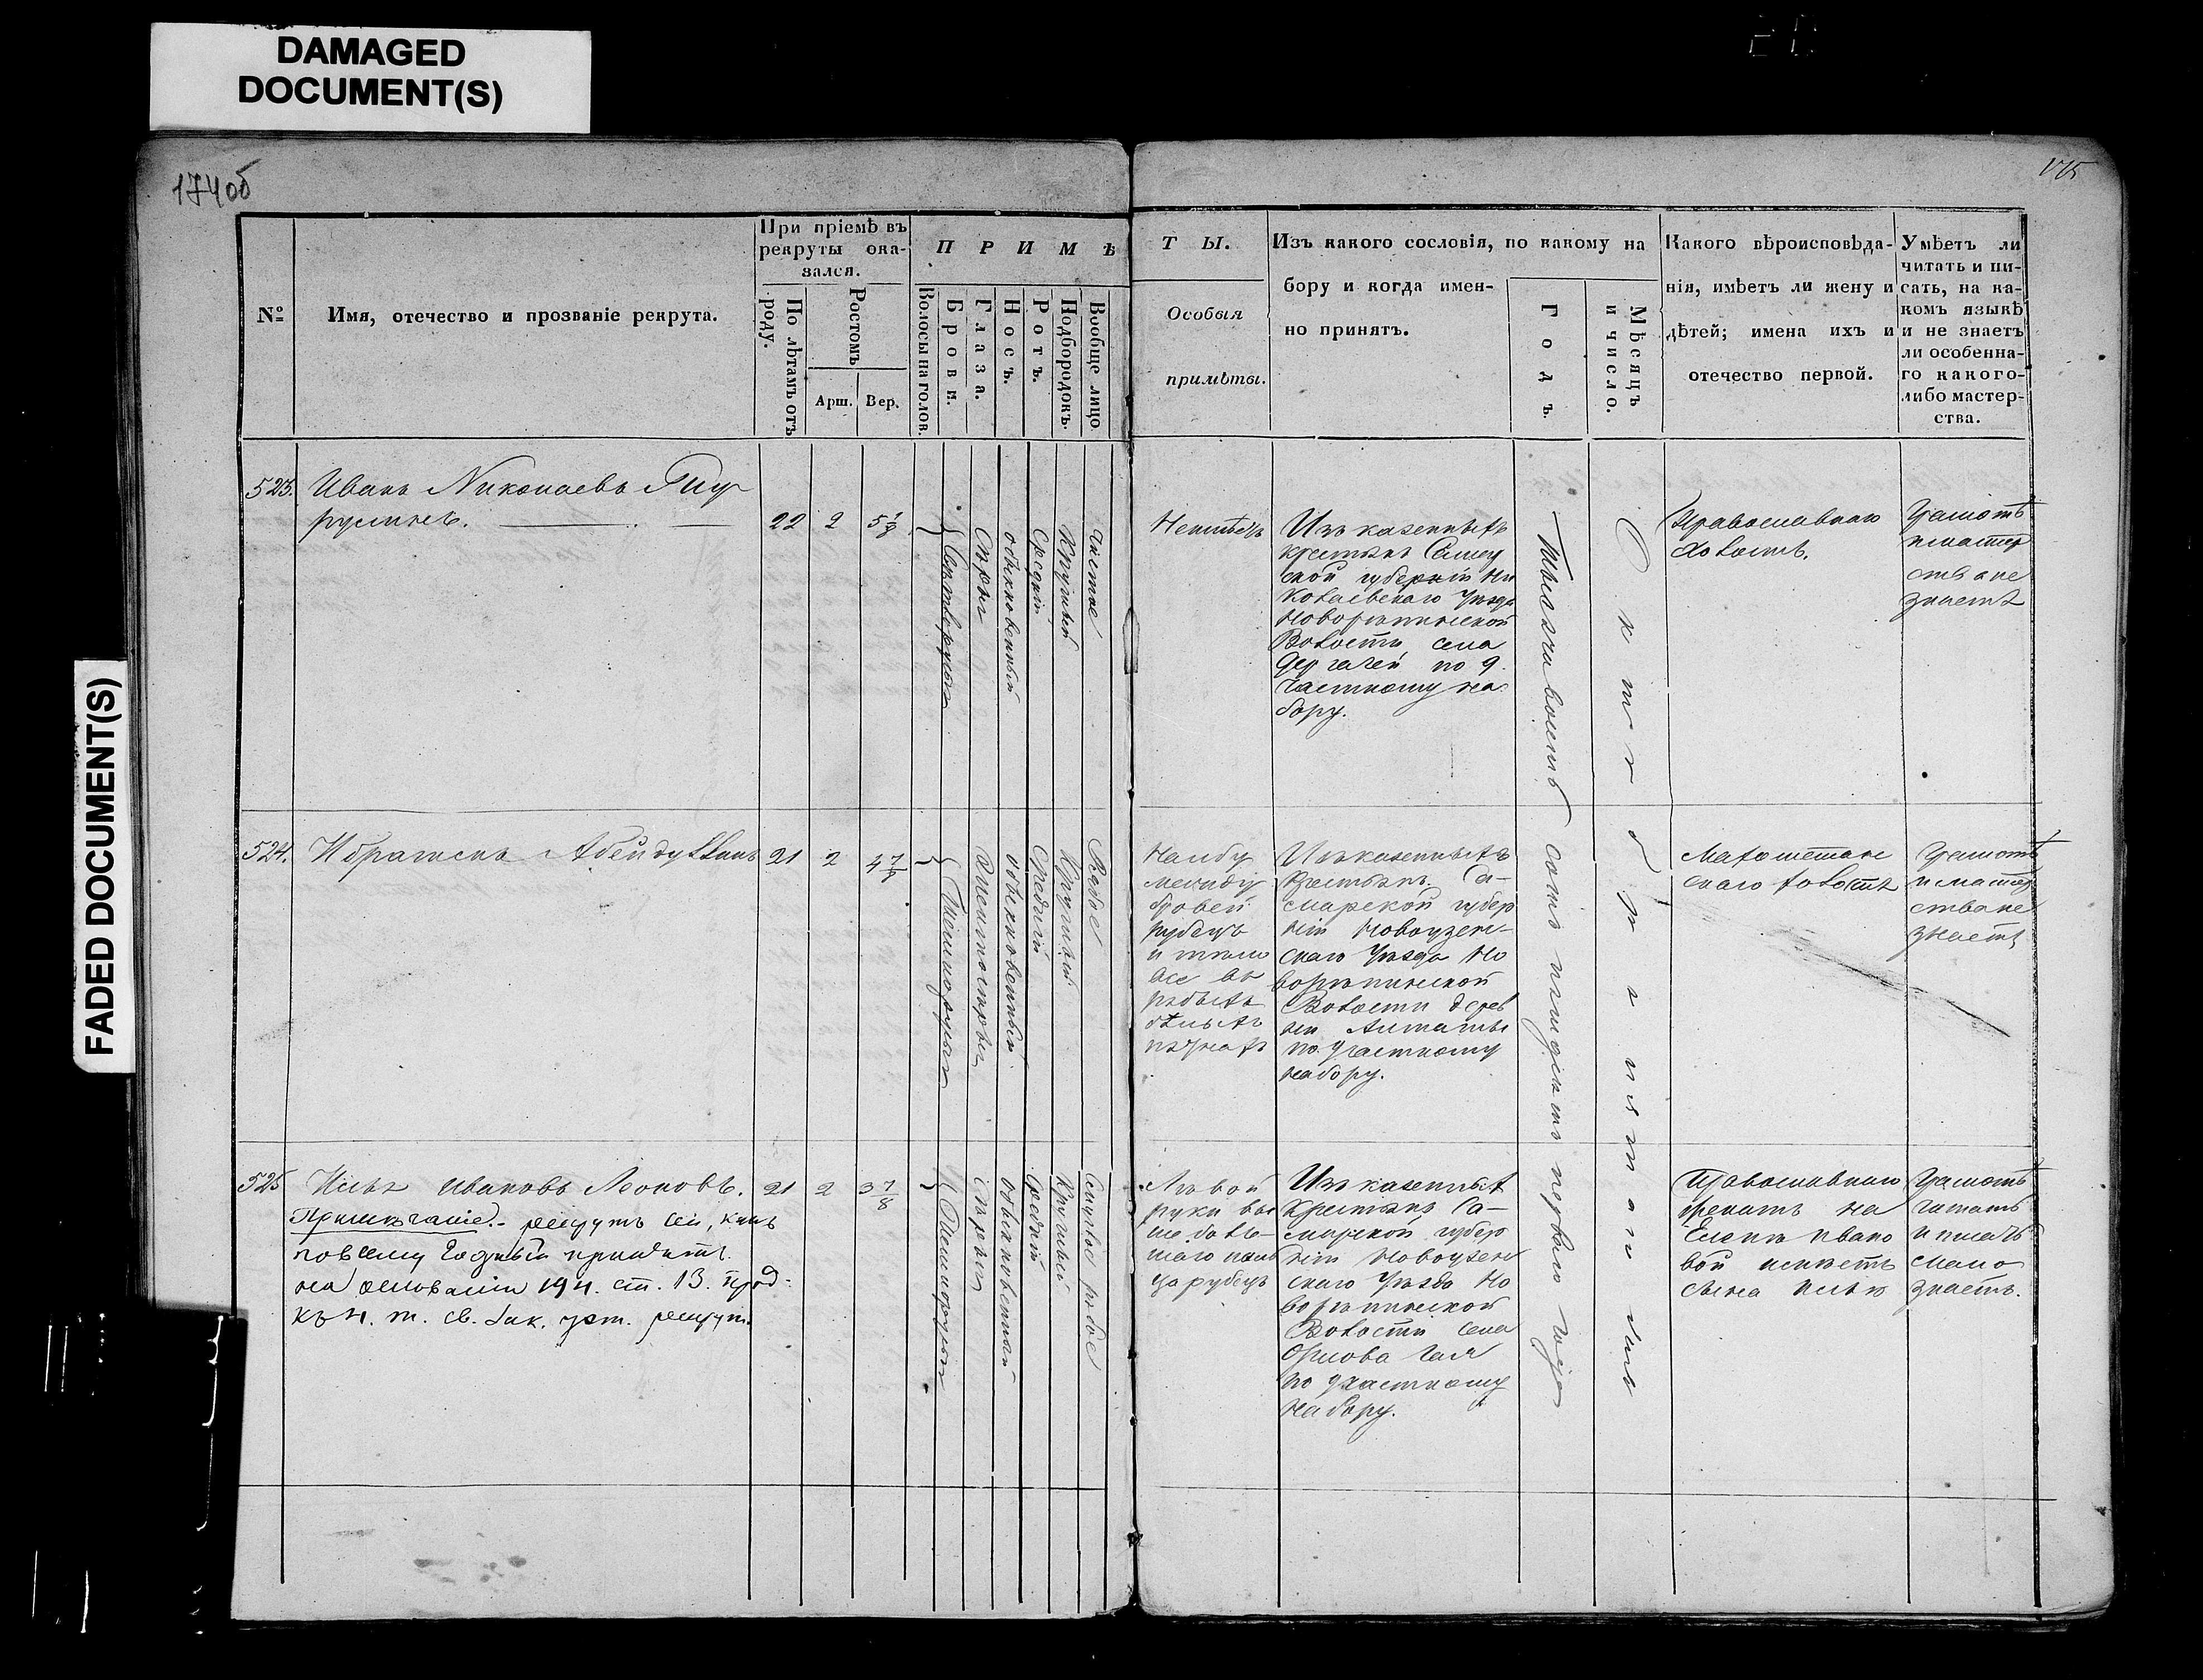 DAMAGED
DOCUMENT(S)
FADED DOCUMENT(S)
174 об
175
№
Имя, отечество и прозваніе рекрута.
При пріемѣ въ
рекруты ока-
зался.
По лѣтамъ отъ
роду.
Ростомъ
Арш.
Вер.
П Р И М Ѣ
Волосы на голов.
Брови.
Глаза.
Носъ.
Ротъ.
Подбородокъ.
Вообще лицо
Т Ы.
Особыя
примѣты.
Изъ какого сословія, по какому на
бору и когда имен-
но принятъ.
Годъ.
Мѣсяцъ
и число.
Какого вѣроисповѣда-
нія, имѣетъ ли жену и
дѣтей; имена ихъ и
отечество первой.
Умѣетъ ли
читать и пи-
сать, на ка-
комъ языкѣ
и не знаетъ
ли особенна-
го какого-
либо мастер-
ства.
523.
Иванъ Николаевъ
22
2
5 1/8
Свѣтлорусыя
Сѣрыя
обыкновенный
Средній
Круглый
чистое
Изъ казенныхъ
крестьянъ
ской губерніи Ни
колаевскаго Уѣзда
Новорѣпинской
Волости, села
Дергачей по 9
частному на
бору.
Тысяча восемь сотъ пятьдесятъ перваго года
Октября пятаго дня
Православнаго
холостъ.
Грамотѣ
и мастер
ства не
знаетъ
524.
Ибрагимъ
21
2
4 7/8
Темнорусыя
обыкновенный
Средній
Круглый
Рябое
На лбу
между
бровей
рубецъ
и тѣло
все въ
бѣлыхъ
Изъ казенныхъ
Крестьянъ Са-
марской губер
ніи Новоузен-
скаго Уѣзда Но
ворѣпинской
Волости дерев
ни Алтаты
по 9 частному
набору.
Магометан
скаго холостъ
Грамотѣ
и мастер
ства не
знаетъ
525
Илья Ивановъ Леоновъ.
Примѣчаніе. - рекрутъ сей, какъ
по всему Годный принятъ
на основаніи 194. ст. 13. прод-
къ 4. т. св. Зак. уст. рекрут.
21
2
3 7/8
Темнорусыя
обыкновенный
Средній
Круглый
рябое
Лѣвой
руки вы
ше боль-
шаго паль
ца рубецъ
Изъ казенныхъ
Крестьянъ Са-
марской губер
ніи Новоузен
скаго Уѣзда Но
ворѣпинской
Волости села
Орлова Гая
по 9 частному
набору.
Православнаго
женатъ на
Еленѣ Ивано
вой имѣетъ
сына Илью
Грамотѣ
читать
и писать
мало
знаетъ.